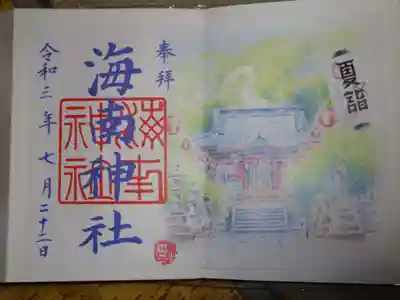 夏詣
奉拝
海南神社
海南神社
令和三年七月二十二日